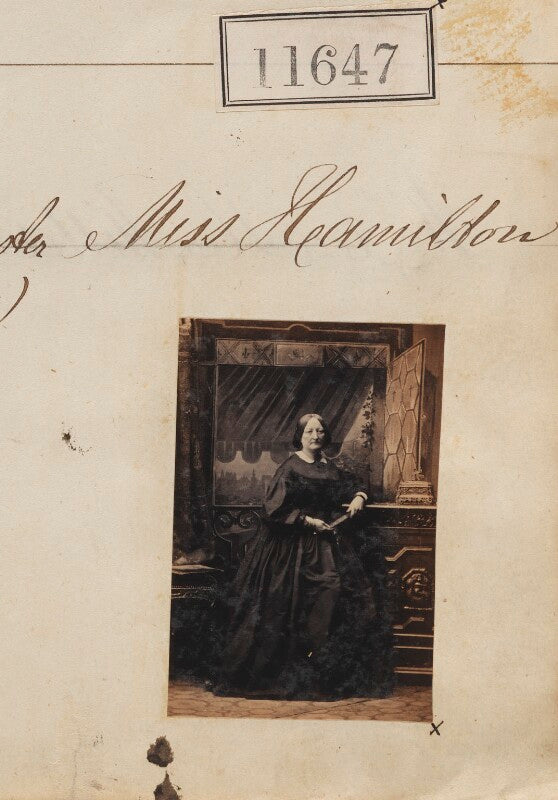 11647
Miss Hamilton